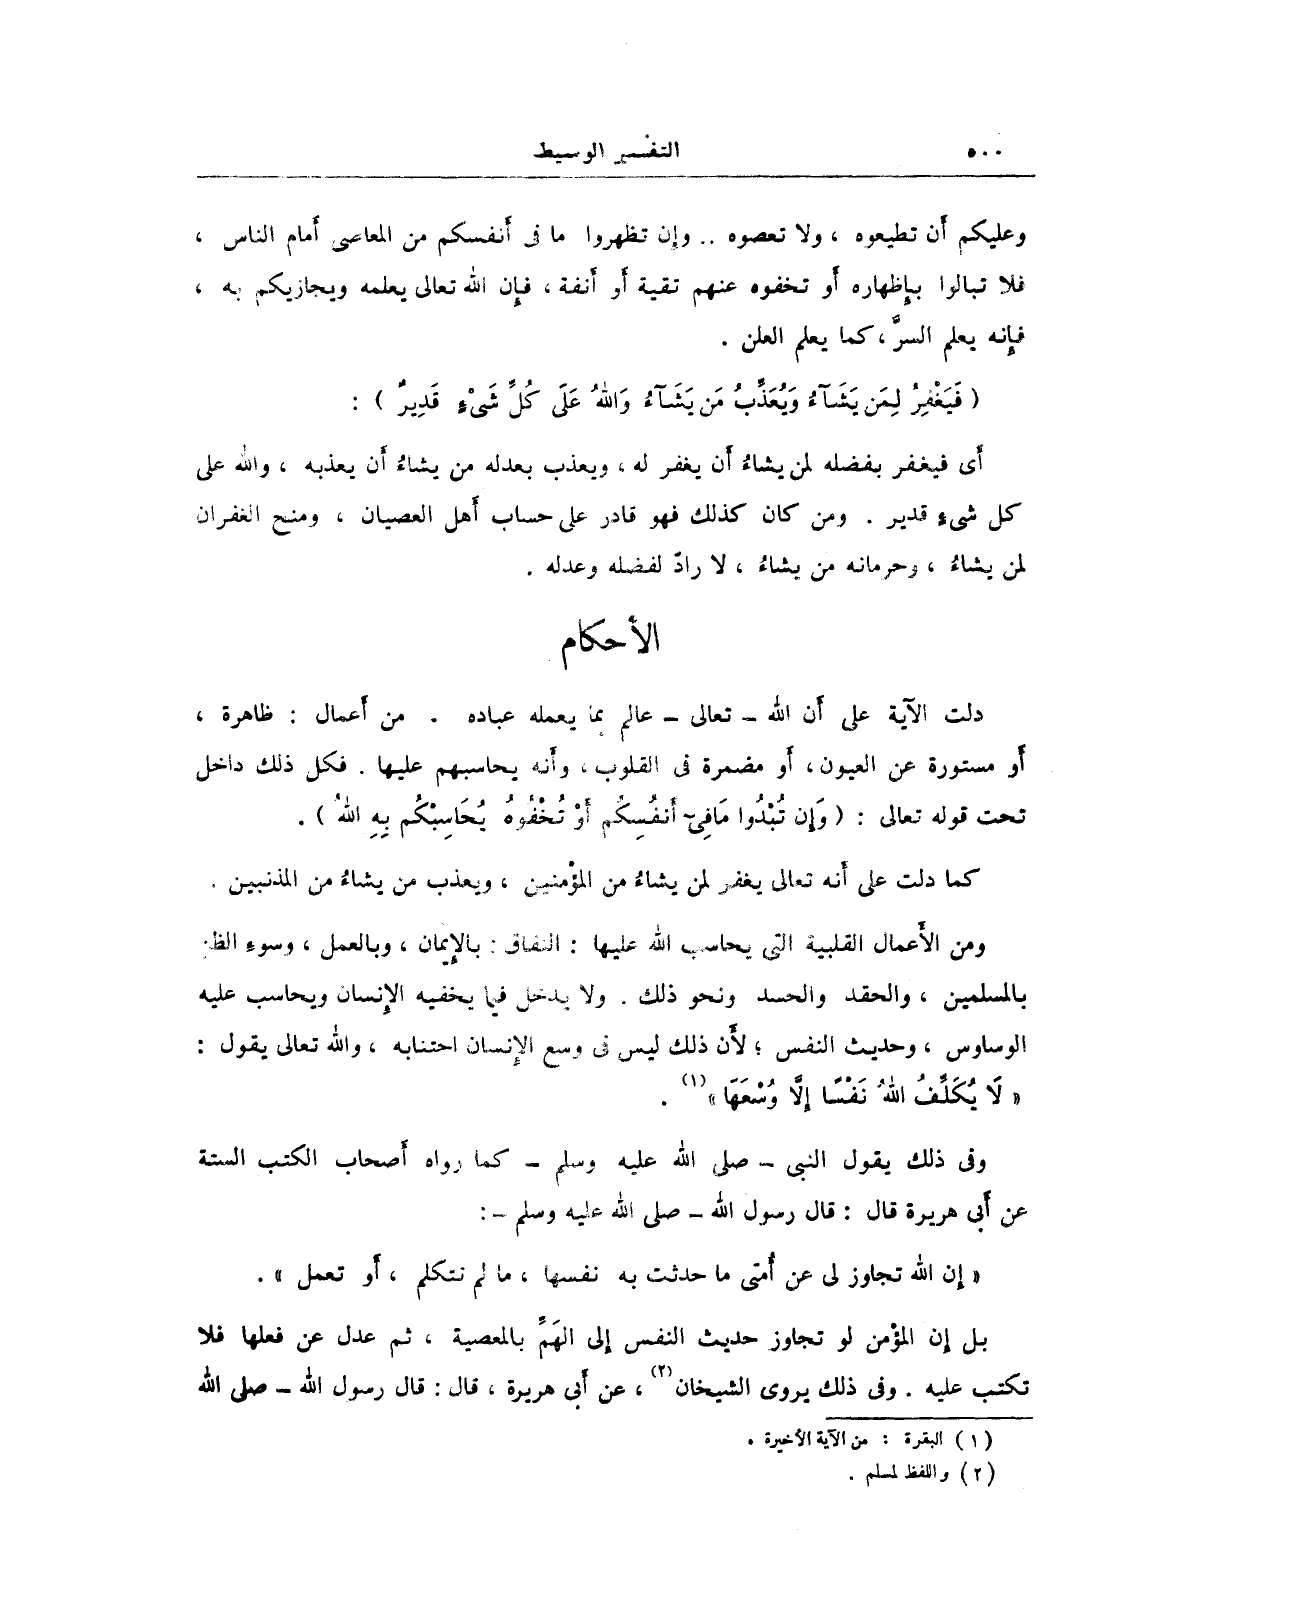 ٥٠٠ التفسير الوسيط
وعليكم أن تطيعوه ، ولا تعصوه .. وإن تظهروا ما فى أنفسكم من المعاصى أمام الناس ،
فلا تبالوا بإظهاره أو تخفوه عنهم تقية أو أنفة ، فإن الله تعالى يعلمه ويجازيكم به ،
فإنه يعلم السرَّ ، كما يعلم العلن .
( فَيَغْفِرُ لِمَن يَشَآءُ وَيُعَذِّبُ مَن يَشَآءُ وَاللهُ عَلَى كُلِّ شَىْءٍ قَدِيرٌ ) :
أى فيغفر بفضله لمن يشاءُ أن يغفر له ، ويعذب بعدله من يشاءُ أن يعذبه ، والله على
كل شىءٍ قدير . ومن كان كذلك فهو قادر على حساب أهل العصيان ، ومنح الغفران
لمن يشاءُ ، وحرمانه من يشاءُ ، لا رادّ لفضله وعدله .
الأحكام
دلت الآية على أن الله – تعالى – عالم بما يعمله عباده . من أعمال : ظاهرة ،
أو مستورة عن العيون ، أو مضمرة فى القلوب ، وأنه يحاسبهم عليها . فكل ذلك داخل
تحت قوله تعالى : ( وَإِن تُبْدُوا مَافِىٓ أَنفُسِكُم أَوْ تُخْفُوهُ يُحَاسِبْكُم بِهِ اللهُ ) .
كما دلت على أنه تعالى يغفر لمن يشاءُ من المؤمنين ، ويعذب من يشاءُ من المذنبين .
ومن الأعمال القلبية التى يحاسب الله عليها : النفاق : بالإيمان ، وبالعمل ، وسوءِ الظن
بالمسلمين ، والحقد والحسد ونحو ذلك . ولا يدخل فيما يخفيه الإنسان ويحاسب عليه
الوساوس ، وحديث النفس ؛ لأن ذلك ليس فى وسع الإنسان اجتنابه ، والله تعالى يقول :
« لَا يُكَلِّفُ اللهُ نَفْسًا إِلَّا وُسْعَهَا »(١) .
وفى ذلك يقول النبى – صلى الله عليه وسلم – كما رواه أصحاب الكتب الستة
عن أبى هريرة قال : قال رسول الله – صلى الله عليه وسلم – :
« إن الله تجاوز لى عن أُمتى ما حدثت به نفسها ، ما لم تتكلم ، أو تعمل » .
بل إن المؤمن لو تجاوز حديث النفس إلى الهَمِّ بالمعصية ، ثم عدل عن فعلها فلا
تكتب عليه . وفى ذلك يروى الشيخان(٢) ، عن أبى هريرة ، قال : قال رسول الله – صلى الله
(١) البقرة : من الآية الأخيرة .
(٢) واللفظ لمسلم .